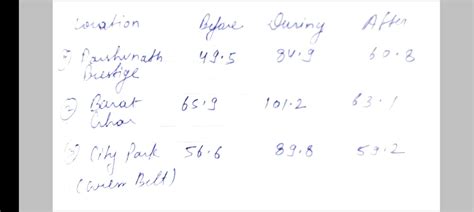 Location Before During After
1) Parshvnath 49.5 84.9 60.8
Prestige
2) Barat 65.9 101.2 63.1
Ghar
3) City Park 56.6 89.8 59.2
(Green Belt)